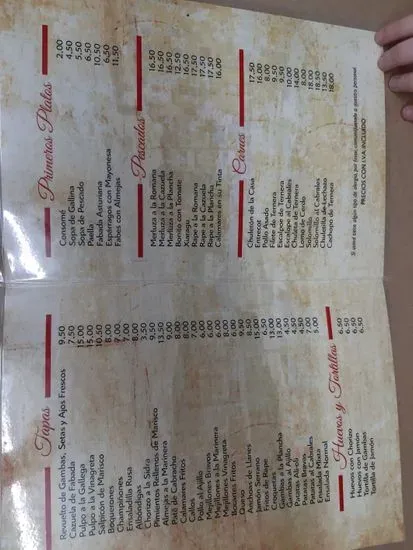 Tapas
Revuelto de Gambas, Setas y Ajos Frescos 9.50
Cazuela de Fabada 7.50
Pulpo a la Gallega 15.00
Pulpo a la Vinagreta 15.00
Salpicón de Marisco 10.50
Boquerones 8.00
Champiñones 7.00
Ensaladilla Rusa 7.00
Albóndigas 8.00
Chorizo a la Sidra 3.50
Pimientos Rellenos de Marisco 9.50
Almejas a la Marinera 13.50
Paté de Cabracho 9.00
Calamares Fritos 8.00
Callos 8.00
Pollo al Ajillo 7.00
Mejillones Bravos 6.00
Mejillones a la Marinera 6.00
Mejillones Vinagreta 6.00
Bocartes Fritos 6.00
Queso 9.50
Anchoas de Llanes 8.50
Jamón Serrano 15.00
Croquetas
Gambas a la Plancha 13.00
Gambas al Ajillo 13.00
Patatas Alioli 4.50
Patatas Bravas 4.50
Patatas al Cabrales 4.50
Ensalada Mixta 7.00
Ensalada Normal 5.00
Huevos y Tortillas
Huevos con Chorizo 6.50
Huevos con Jamón 6.50
Tortilla de Gambas 6.50
Tortilla de Jamón 6.50
Primeros Platos
Consomé 2.00
Sopa de Gallina 4.50
Sopa de Pescado 5.50
Paella 6.50
Fabada Asturiana 10.50
Espárragos con Mayonesa 6.50
Fabes con Almejas 11.50
Pescados
Merluza a la Romana 16.50
Merluza a la Cazuela 16.50
Merluza a la Plancha 16.50
Bonito con Tomate 12.50
16.50
Rape a la Romana 17.50
Rape a la Cazuela 17.50
Rape a la Plancha 17.50
Calamares en su Tinta 16.00
Carnes
Chuletón de la Casa 17.50
Entrecot 16.00
Pollo Asado 8.00
Filete de Ternera 9.50
Escalope de Ternera 9.50
Escalope al Cabrales 10.00
Chuleta de Ternera 14.00
Lomo de Cerdo 8.00
Solomillo 18.00
Solomillo al Cabrales 18.50
Chuletilla de Lechazo 13.50
Cachopo de Ternera 18.00
Si usted tiene algún tipo de alergia, por favor, comuníquelo a nuestro personal
PRECIOS CON I.V.A. INCLUIDO